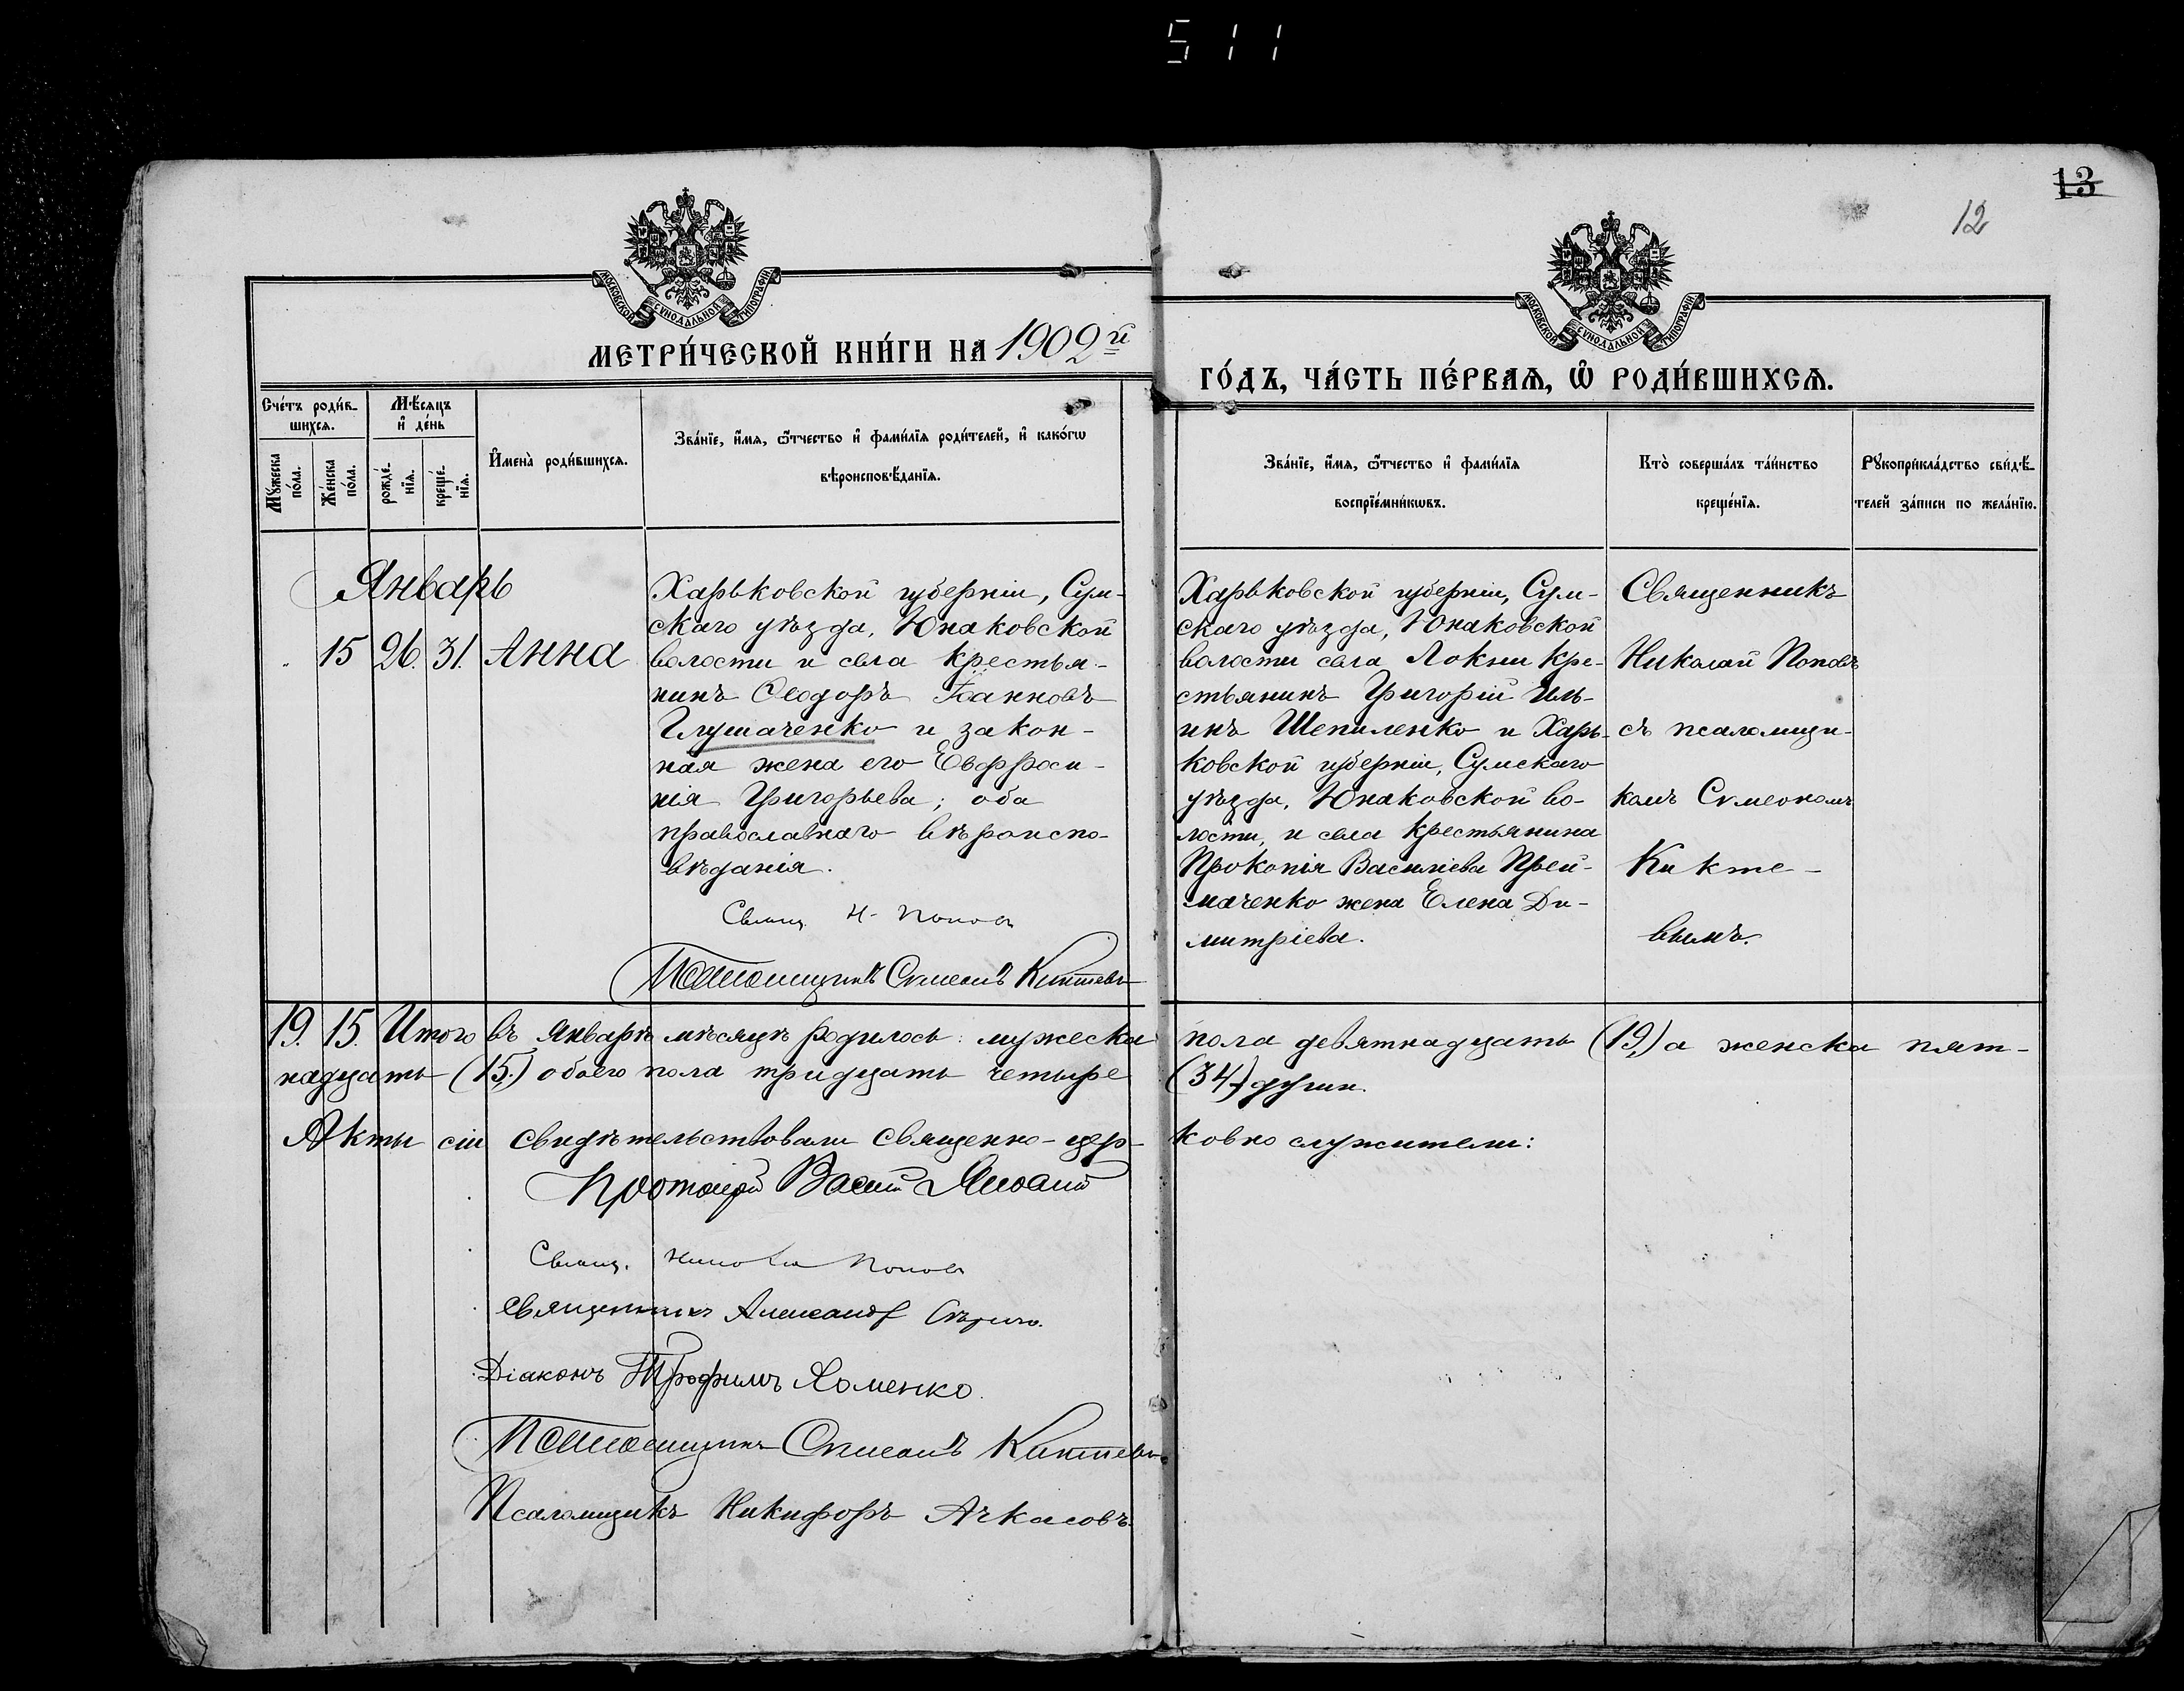 511
13
12
МОСКОВСКОЙ СѴНОДАЛЬНОЙ ТИПОГРАФІИ
МОСКОВСКОЙ СѴНОДАЛЬНОЙ ТИПОГРАФІИ
МЕТРИ́ЧЕСКОЙ КНИ́ГИ НА 1902й
ГО́ДЪ, ЧА́СТЬ ПЕ́РВАЯ, Ѽ РОДИ́ВШИХСЯ.
Сче́тъ роди́в-
шихся.
Му́жеска
по́ла.
Же́нска
по́ла.
Мѣ́сяцъ
и҆ де́нь
рожде́-
нїя.
креще́-
нїя.
И҆мена̀ роди́вшихся.
Зва́нїе, и҆́мя, ѻ҆́тчество и҆ фами́лїя роди́телей, и҆ како́гѡ
вѣроисповѣ́данїя.
Зва́нїе, и҆́мя, ѻ҆́тчество и҆ фами́лїя
воспрїе́мникѡвъ.
Кто̀ соверша́лъ та́инство
креще́нїя.
Рꙋкоприкла́дство свидѣ́-
телей за́писи по жела́нїю.
Январь
15 26. 31. Анна
Харьковской губерніи, Сум-
скаго уѣзда, Юнаковской
волости и села крестья-
нинъ Ѳеодоръ Іоанновъ
Глушаченко и закон-
ная жена его Евфроси-
нія Григорьева; оба
православнаго вѣроиспо-
вѣданія.
Свящ. Н. Поповъ
Псаломщикъ Сѵмеонъ Киктевъ
Харьковской губерніи, Сум-
скаго уѣзда, Юнаковской
волости села Локни кре-
стьянинъ Григорій Иль-
инъ Шепиленко и Харь-
ковской губерніи, Сумскаго
уѣзда, Юнаковской во-
лости, и села крестьянина
Прокопія Василіева Прей-
маченко жена Елена Ди-
митріева.
Священникъ
Николай Поповъ
съ псаломщи-
комъ Сѵмеономъ
Кикте-
вымъ.
19. 15. Итого въ Январѣ мѣсяцѣ родилось: мужеска пола девятнадцать (19,) а женска пят-
надцать (15,) обоего пола тридцать четыре (34) души.
Акты сіи свидѣтельствовали священно-цер-ковно служители:
Протоіерей Василій
Свящ. Николай Поповъ
Священникъ Александр
Діаконъ Трофимъ Хоменко.
Псаломщикъ Сѵмеонъ Киктевъ
Псаломщикъ Никифоръ Ачкасовъ.